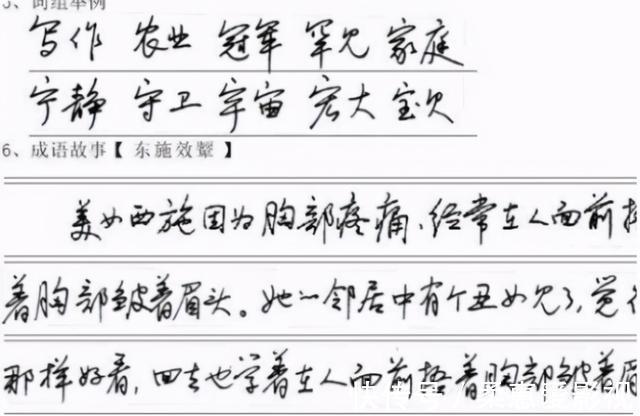 5、词组举例
写作 农业 冠军 罕见 家庭
宁静 守卫 宇宙 宏大 宝贝
6、成语故事【东施效颦】
美女西施因为胸部疼痛,经常在人面前捂
着胸部皱着眉头。她的邻居中有个丑女见了,觉
那样好看,回去也学着在人面前捂着胸部皱着眉